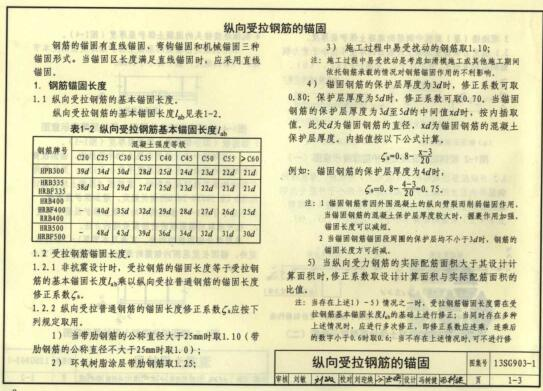 纵向受拉钢筋的锚固
钢筋的锚固有直线锚固、弯钩锚固和机械锚固三种
锚固形式。当锚固区长度满足直线锚固时,应采用直线
锚固。
1. 钢筋锚固长度
1.1 纵向受拉钢筋的基本锚固长度。
纵向受拉钢筋的基本锚固长度lab见表1-2。
表1-2 纵向受拉钢筋基本锚固长度lab
钢筋牌号 混凝土强度等级
C20 C25 C30 C35 C40 C45 C50 C55 ≥C60
HPB300 39d 34d 30d 28d 25d 24d 23d 22d 21d
HRB335
HRBF335 38d 33d 29d 27d 25d 23d 22d 21d 21d
HRB400
HRBF400
RRB400 - 40d 35d 32d 29d 28d 27d 26d 25d
HRB500
HRBF500 - 48d 43d 39d 36d 34d 32d 31d 30d
1.2 受拉钢筋锚固长度。
1.2.1 非抗震设计时,受拉钢筋的锚固长度等于受拉钢
筋的基本锚固长度lab乘以纵向受拉普通钢筋的锚固长度
修正系数ζa。
1.2.2 纵向受拉普通钢筋的锚固长度修正系数ζa应按下
列规定取用。
1) 当带肋钢筋的公称直径大于25mm时取1.10(带
肋钢筋的公称直径不大于25mm时取1.0);
2) 环氧树脂涂层带肋钢筋取1.25;
3) 施工过程中易受扰动的钢筋取1.10;
注: 施工过程中易受扰动是考虑如滑模施工或其他施工期间
依托钢筋承载的情况对钢筋锚固作用的不利影响。
4) 锚固钢筋的保护层厚度为3d时,修正系数可取
0.80;保护层厚度为5d时,修正系数可取0.70。当锚固
钢筋的保护层厚度为3d至5d的中间值xd时,按内插取
值。此处d为锚固钢筋的直径,xd为锚固钢筋的混凝土
保护层厚度。内插值按以下公式计算,
ζa=0.8-(x-3)/20
例如:锚固钢筋的保护层厚度为4d时,
ζa=0.8-(4-3)/20=0.75。
注: 1 锚固钢筋常因外围混凝土的纵向劈裂而削弱锚固作用,
当锚固钢筋的混凝土保护层厚度较大时,握裹作用加强,
锚固长度可以减短。
2 当锚固钢筋锚固段周围的保护层均不小于3d时,钢筋的
锚固长度方可折减。
5) 当纵向受力钢筋的实际配筋面积大于其设计计
算面积时,修正系数取设计计算面积与实际配筋面积的
比值。
注: 当存在上述1)~5)情况之一时,受拉钢筋锚固长度需在受
拉钢筋基本锚固长度lab的基础上进行修正;当同时存在多种
上述情况时,应进行多次修正,即修正系数应连乘,连乘后
的数字小于0.6时取0.6;当不存在上述情况时,可不进行修
纵向受拉钢筋的锚固 图集号 13SG903-1
审核 刘敏 校对 设计 冯树健 页 1-3